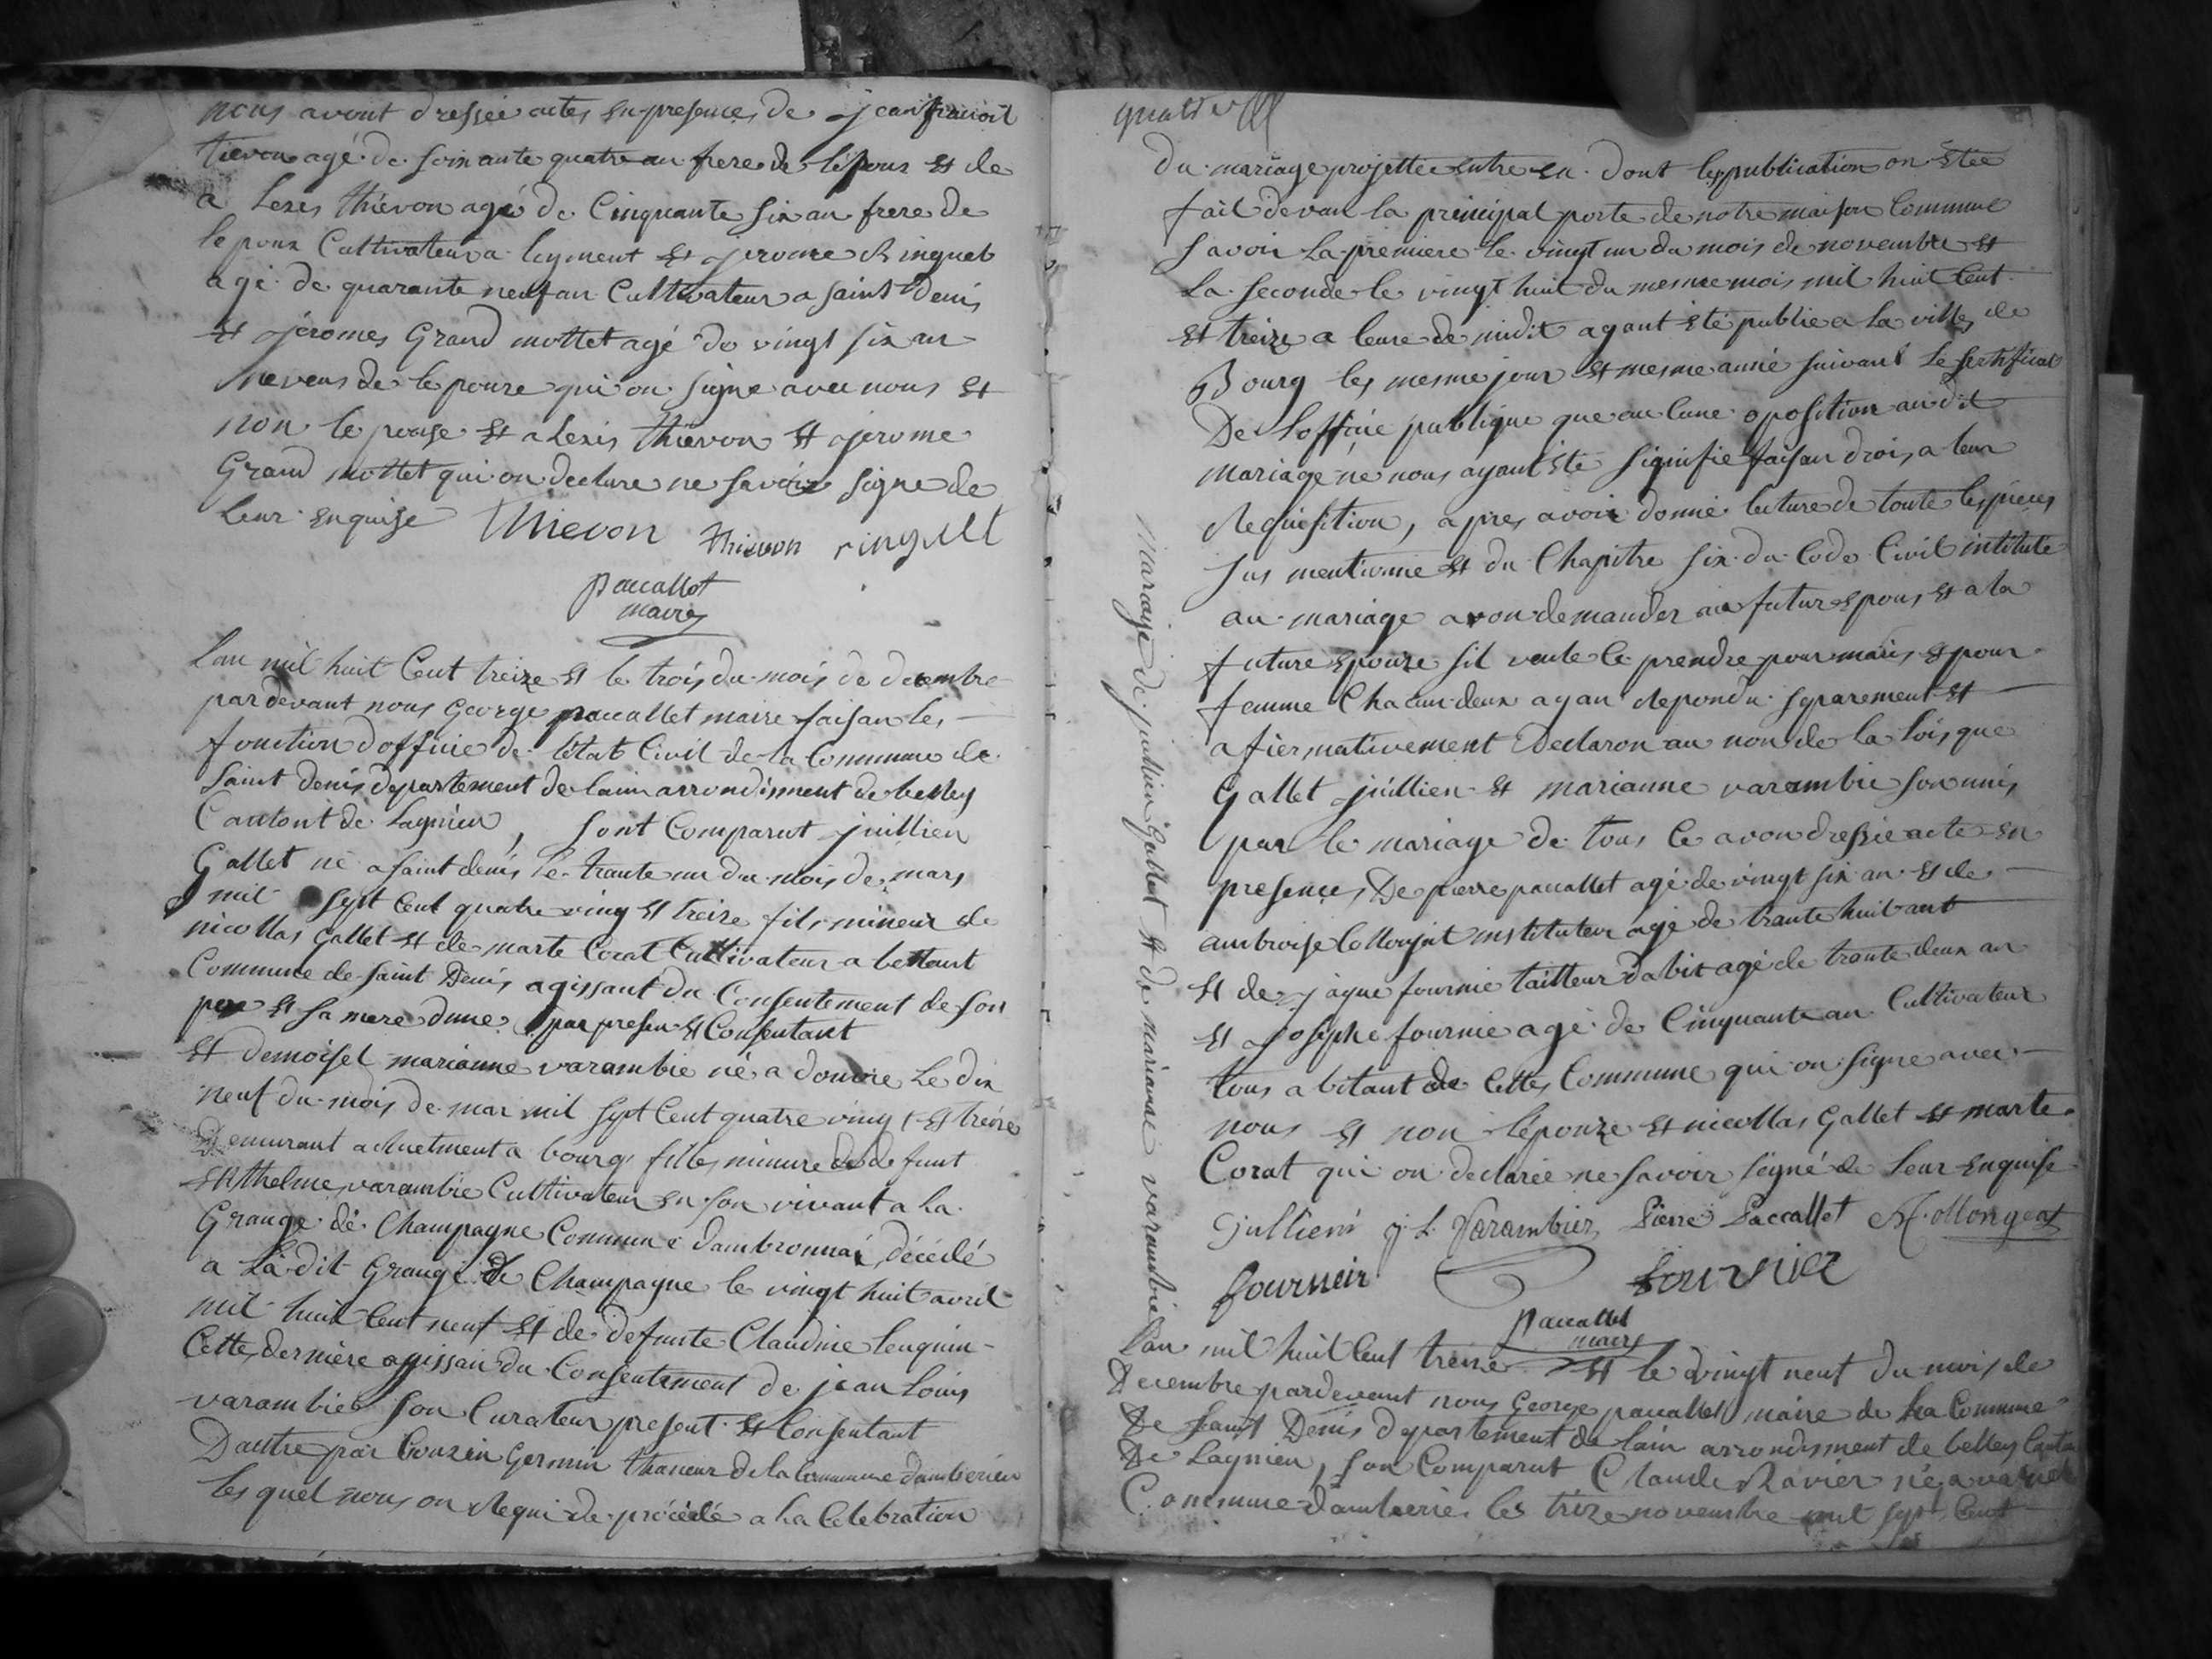 nous avont dressée actes en presences de jean franoit
tievon agé de soixante quatre an frere de lépoux et de
a lexes thiévon agé de Cinquante six an frere de
lepoux Cultivateur a leyment et jerome Ringuet
agé de quarante neuf an Cultivateur a saint Denis
et jéromes Grand mottet agé de vingt six an
neveus de lepouze qui on signe avec nous et
non le pouse et alexis thiévon et jerome
Grand mottet qui on declare ne savoir signe de
leur enquise Thievon thievon ringuet
paccallet
maire
Lan mil huit Cent treize et le trois du mois de decembre
pardevant nous George paccallet maire faisan les
fonction doffice de létat Civil de la Commune de
saint denis departement de lain arrondisment de belley
Cantont de Lagnieu, sont Comparut juillien
Gallet né a saint denis le trante un du mois de mars
mil sept Cent quatre ving et treize fils mineur de
nicollas Gallet et de marte Corat Cultivateur a bettant
Commune de saint Denis agissant du Consentement de son
pere et sa mere dune par presen et Consentant
et demoisel marianne varambie né a douvre le dix
neuf du mois de mar mil sept Cent quatre ving t et treize
Demurant actuelment a bourg filles minure de defunt
enthelme varambie Cultivateur en son vivant a la
Grange de Champagne Commune dambronnai, décédé
a la dit Grange de Champagne le vingt huit avril
mil huit Cent neuf et de defunte Claudine
Cette derniere agissan du Consentement de jean Louis
varambier son Curateur present et Consentant
Dautre par Couzin Germin thaneur de la Commune dambérieu
les quel nous on Requi de procédé a la Celebration
quatre
Du mariage projettée entre eu Dont les publication on étée
fait devan la principal porte de notre maison Commune
savoir la premiere le vingt un du mois de novembre et
la seconde le vingt huit du mesme mois mil huit Cent
et treize a leure de midit ayant eté publie a la villes de
Bourg les mesme jour et mesme année suivant le sertificat
De loffice publique que au Cune oposition audit
mariage né nous ayant ete signifie faisan droit, a leur
Requisition, apres avoir donné lecture de toute les pieces
sus mentionné et du Chapitre six du Code Civil intitulé
au mariage avon demander au futur epous, et a la
future epouze sil veule le prendre pour maris et pour
femme Chacun deux ayan Repondu separement et
afiermativement Declaron au non de la lois que
Gallet juillien et marianne varambie son unis
par le mariage de tous Ce avon dressée acte en
presences De pierre paccallet agé de vingt six an et de
ambroise Collonjat instituteur agé de trante huit ant
et de jaque fournie tailleur dabit agé de trante deux an
et josephe fournie agé de Cinquante an Cultivateur
tous abitant de Cettes Commune qui on signe avec
nous et non lépouze et nicollas Gallet et marte
Corat qui on declarée ne savoir signé de leur enquise
Jullieni j. L. Varambier Pierre Paccallet A. Collongeat
fournier fournier
paccallet
maire
Mariage de juillien Gallet et de mariane varambie
Lan mil huit Cent treize et le vingt neuf du mois de
Decembre pardevant nous George paccallet maire de la Commune
De saint Denis departement de lain arrondisment de belley Canton
De Lagnieu, son Comparut Claude Ravier né a
Commune dambérie les trize novembre mil sept Cent